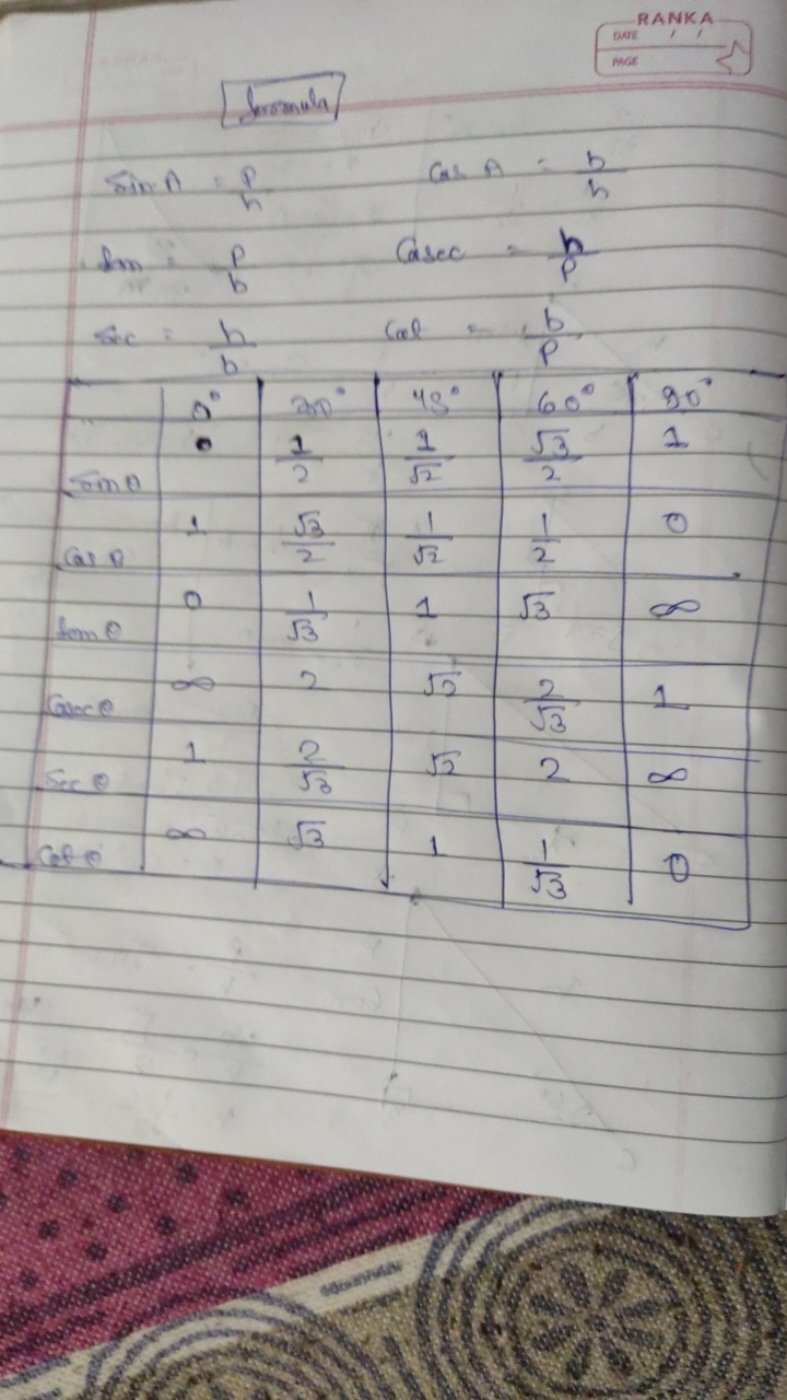 RANKA
DATE / /
PAGE
formula
Sin A = P/h Cos A = b/h
tan = P/b Cosec = h/P
Sec = h/b Cot = b/P
0° 30° 45° 60° 90°
Sin θ 0 1/2 1/√2 √3/2 1
Cos θ 1 √3/2 1/√2 1/2 0
tan θ 0 1/√3 1 √3 ∞
Cosec θ ∞ 2 √2 2/√3 1
Sec θ 1 2/√3 √2 2 ∞
Cot θ ∞ √3 1 1/√3 0